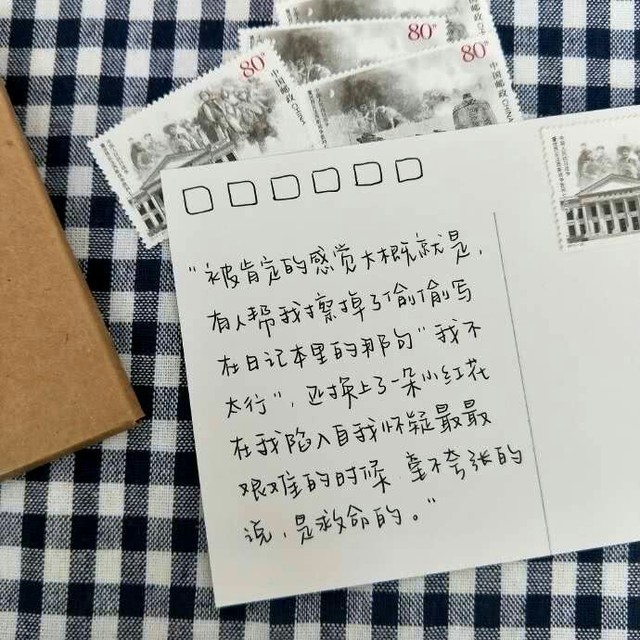 80分
中国邮政 CHINA
80分
中国邮政
80分
中国邮政 CHINA
"被肯定的感觉大概就是,
有人帮我擦掉了偷偷写
在日记本里的那句"我不
太行",还换上了一朵小红花
在我陷入自我怀疑最最
艰难的时候 毫不夸张的
说,是救命的。"